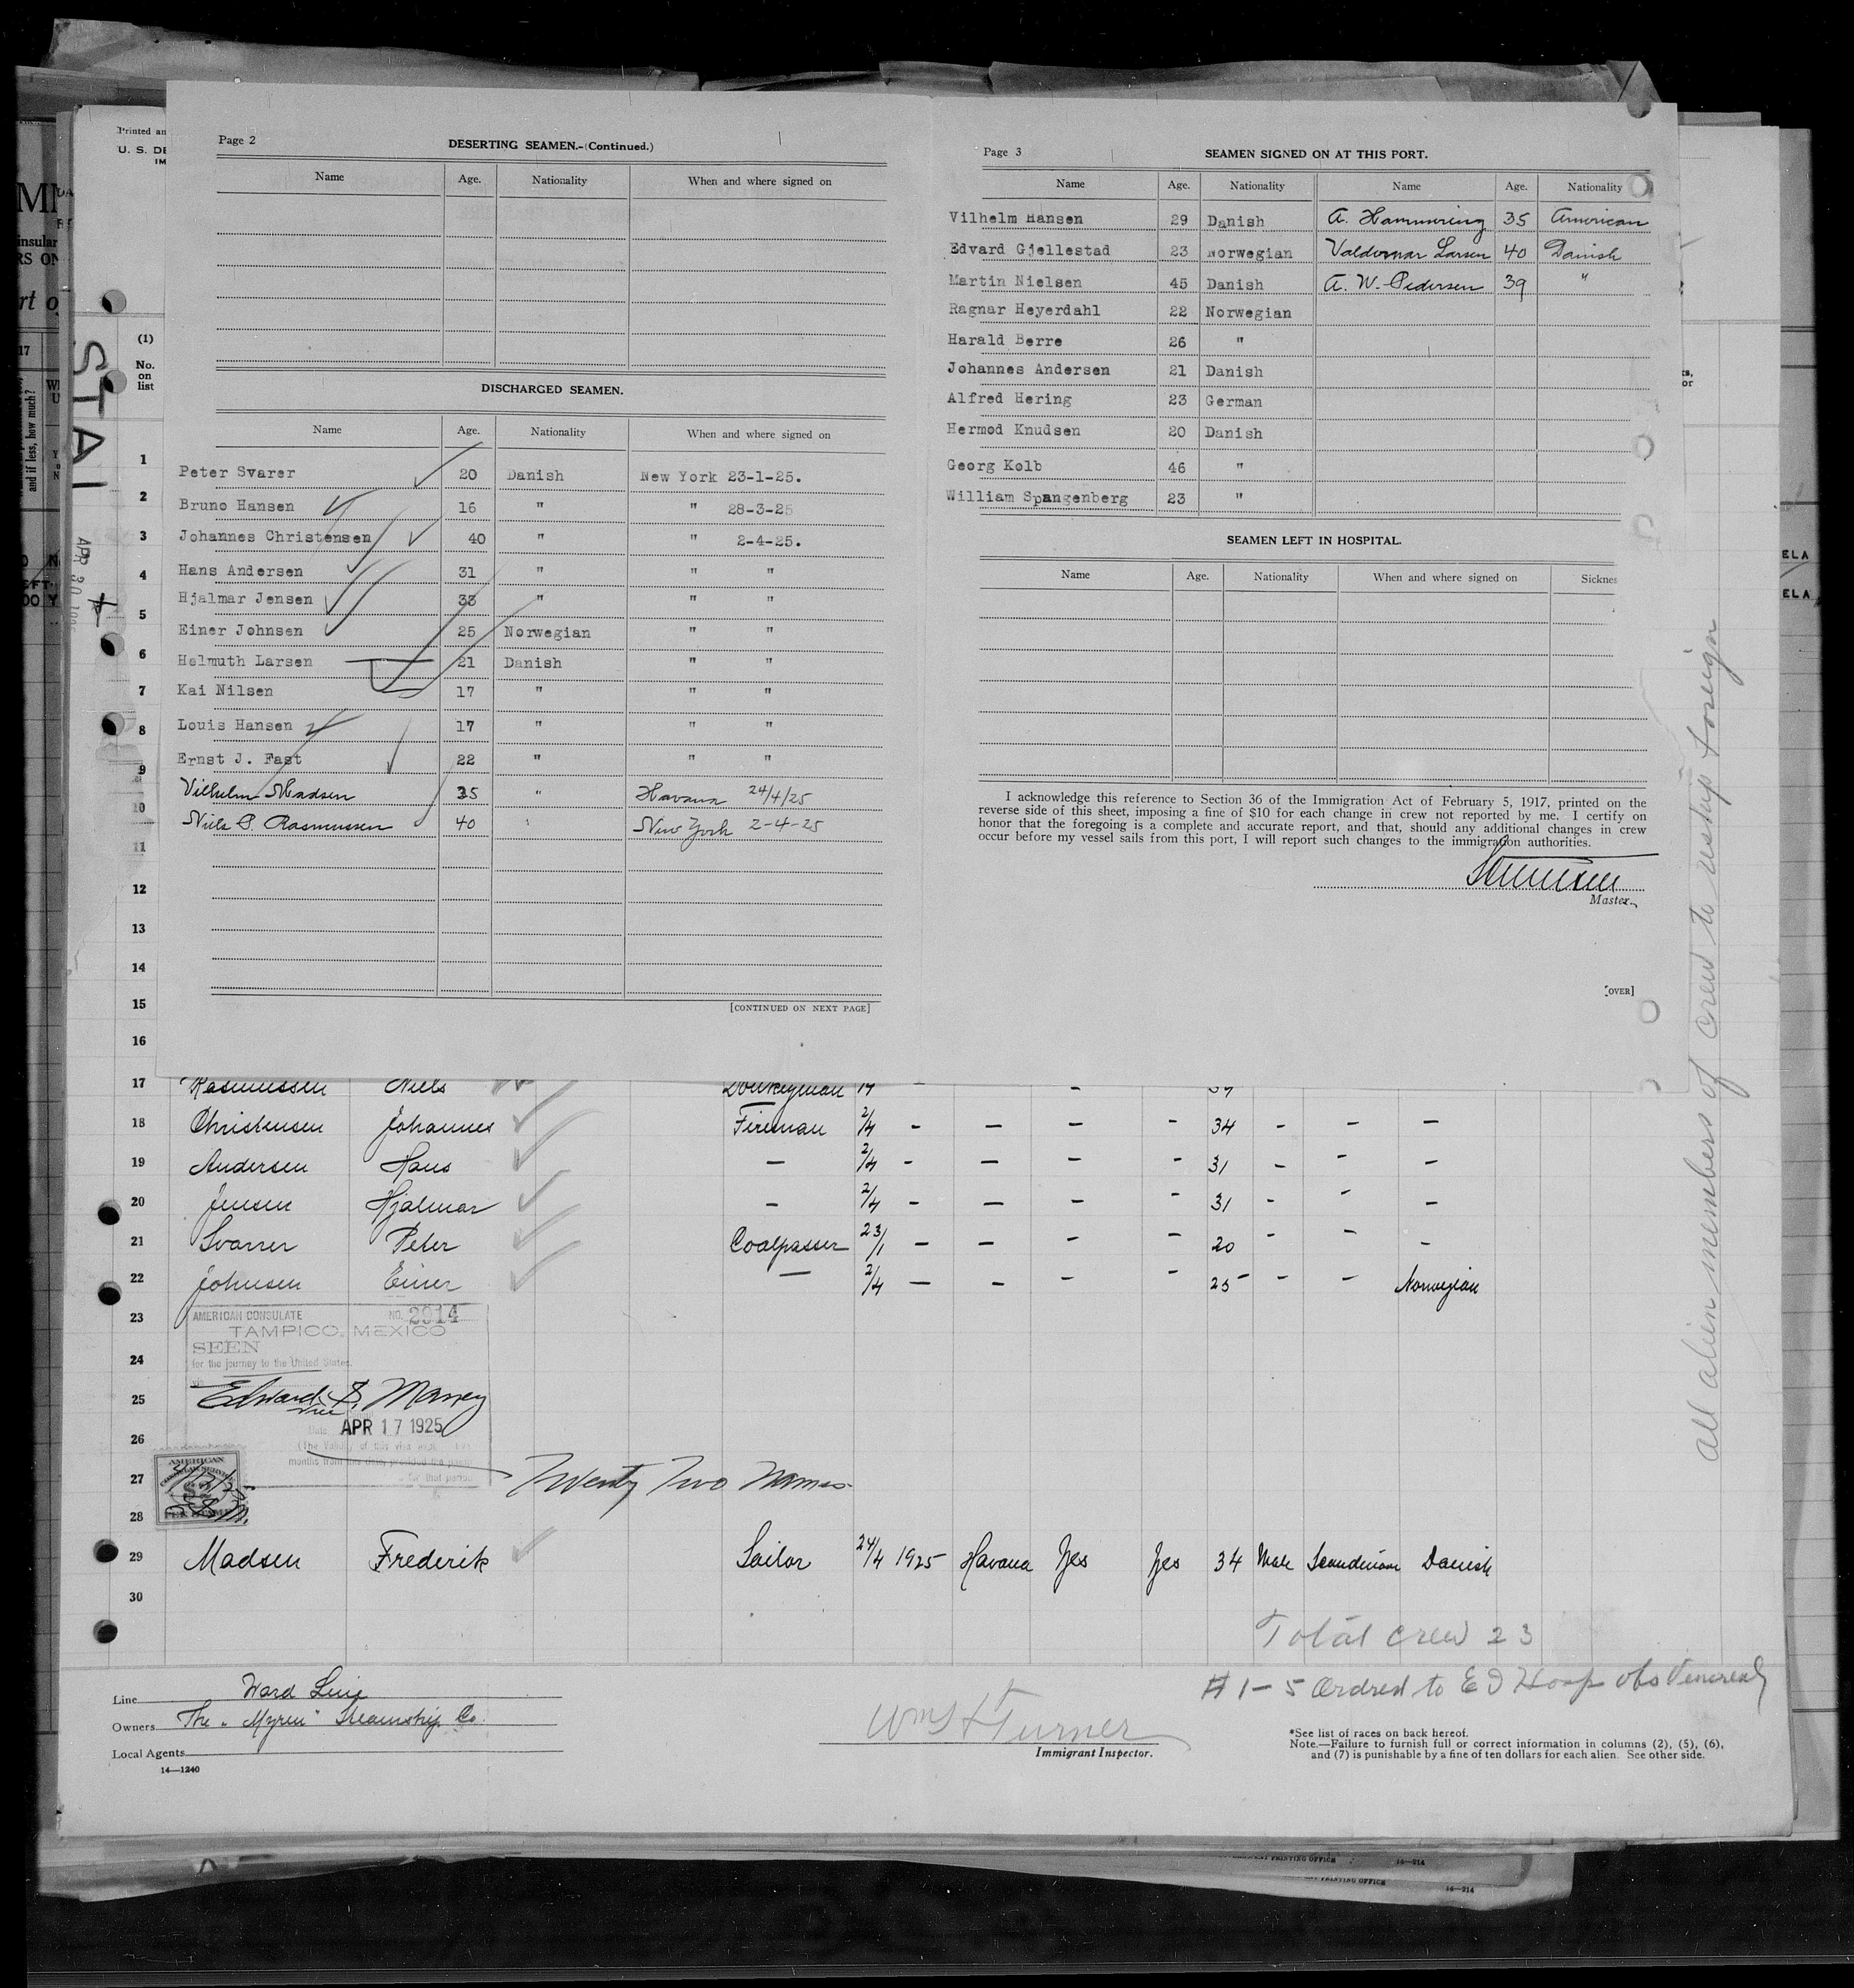 Page 2
DESERTING SEAMEN.-(Continued.)
Name Age. Nationality When and where signed on
DISCHARGED SEAMEN.
Name Age. Nationality When and where signed on
Peter Svarer 20 Danish New York 23-1-25.
Bruno Hansen 16 " " 28-3-25
Johannes Christensen 40 " " 2-4-25.
Hans Andersen 31 " " "
Hjalmar Jensen 33 " " "
Einer Johnsen 25 Norwegian " "
Helmuth Larsen 21 Danish " "
Kai Nilsen 17 " " "
Louis Hansen 17 " " "
Ernst J. Fast 22 " " "
Vilhelm Madsen 35 " Havana 24/4/25
Niels P. Rasmussen 40 " New York 2-4-25
[CONTINUED ON NEXT PAGE]
Page 3
SEAMEN SIGNED ON AT THIS PORT.
Name Age. Nationality Name Age. Nationality
Vilhelm Hansen 29 Danish A. Hammering 35 American
Edvard Gjellestad 23 Norwegian Valdemar Larsen 40 Danish
Martin Nielsen 45 Danish A. W. Pedersen 39 "
Ragnar Heyerdahl 22 Norwegian
Harald Berre 26 "
Johannes Andersen 21 Danish
Alfred Hering 23 German
Hermod Knudsen 20 Danish
Georg Kolb 46 "
William Spangenberg 23 "
SEAMEN LEFT IN HOSPITAL.
Name Age. Nationality When and where signed on Sicknes
I acknowledge this reference to Section 36 of the Immigration Act of February 5, 1917, printed on the
reverse side of this sheet, imposing a fine of $10 for each change in crew not reported by me. I certify on
honor that the foregoing is a complete and accurate report, and that, should any additional changes in crew
occur before my vessel sails from this port, I will report such changes to the immigration authorities.
Master.
[OVER]
Printed an
U. S. DE
IM
(1)
No.
on
list
STAI
APR 30
1
2
3
4
5
6
7
8
9
10
11
12
13
14
15
16
17 Rasmussen Niels Donkeyman
18 Christensen Johannes Fireman 2/4 - - - - 34 - - -
19 Andersen Hans - 2/4 - - - - 31 - - -
20 Jensen Hjalmar - 2/4 - - - - 31 - - -
21 Svarrer Peter Coalpasser 23/1 - - - - 20 - - -
22 Johnsen Einer - 2/4 - - - - 25 - - Norwegian
23
24
25
26
27
28
AMERICAN CONSULATE NO. 2914
TAMPICO, MEXICO
SEEN
for the journey to the United States.
Edward S. Maney
Date APR 17 1925
Twenty Two Names
29 Madsen Frederik Sailor 24/4 1925 Havana Yes Yes 34 Male Scandinav Danish
30
Total crew 23
# 1-5 Ordred to E I Hosp obs Venereal
Line Ward Line
Owners The "Myren" Steamship Co.
Local Agents
14—1240
Wm H Turner
Immigrant Inspector.
*See list of races on back hereof.
Note.—Failure to furnish full or correct information in columns (2), (5), (6),
and (7) is punishable by a fine of ten dollars for each alien. See other side.
all alien members of crew to reship foreign
and if less, how much?
ELA
ELA
PRINTING OFFICE 14—214
PRINTING OFFICE 14—214